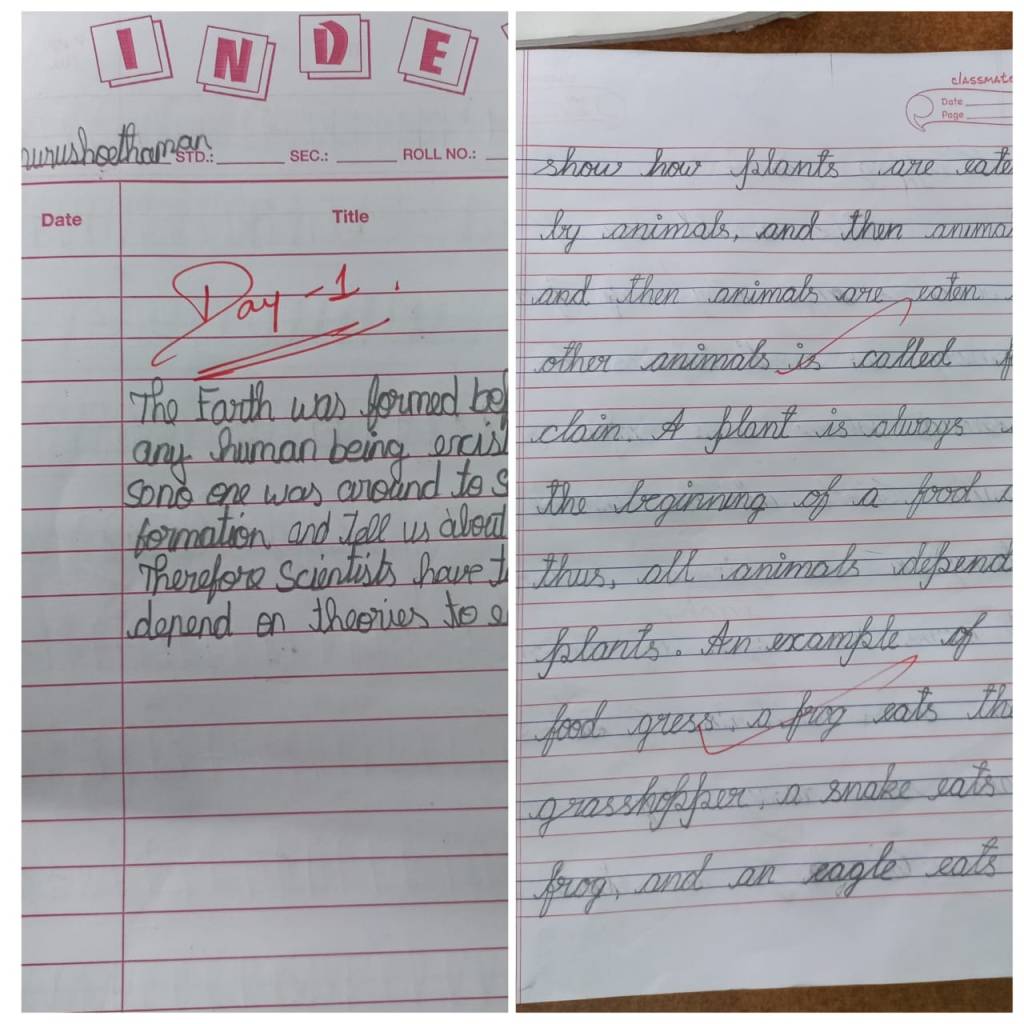 INDE
urushoethaman
STD.: SEC.: ROLL NO.:
Date Title
Day - 1.
The Earth was formed bef
any human being excist
sono one was around to s
formation and Tell us about
Therefore Scientists have t
depend on theories to e
classmate
Date
Page
show how plants are eate
by animals, and then anima
and then animals are eaten
other animals is called f
clain. A plant is always
the beginning of a food
thus, all animals depend
plants. An example of
food gress. a frog eats th
grasshopper, a snake eats
frog, and an eagle eats